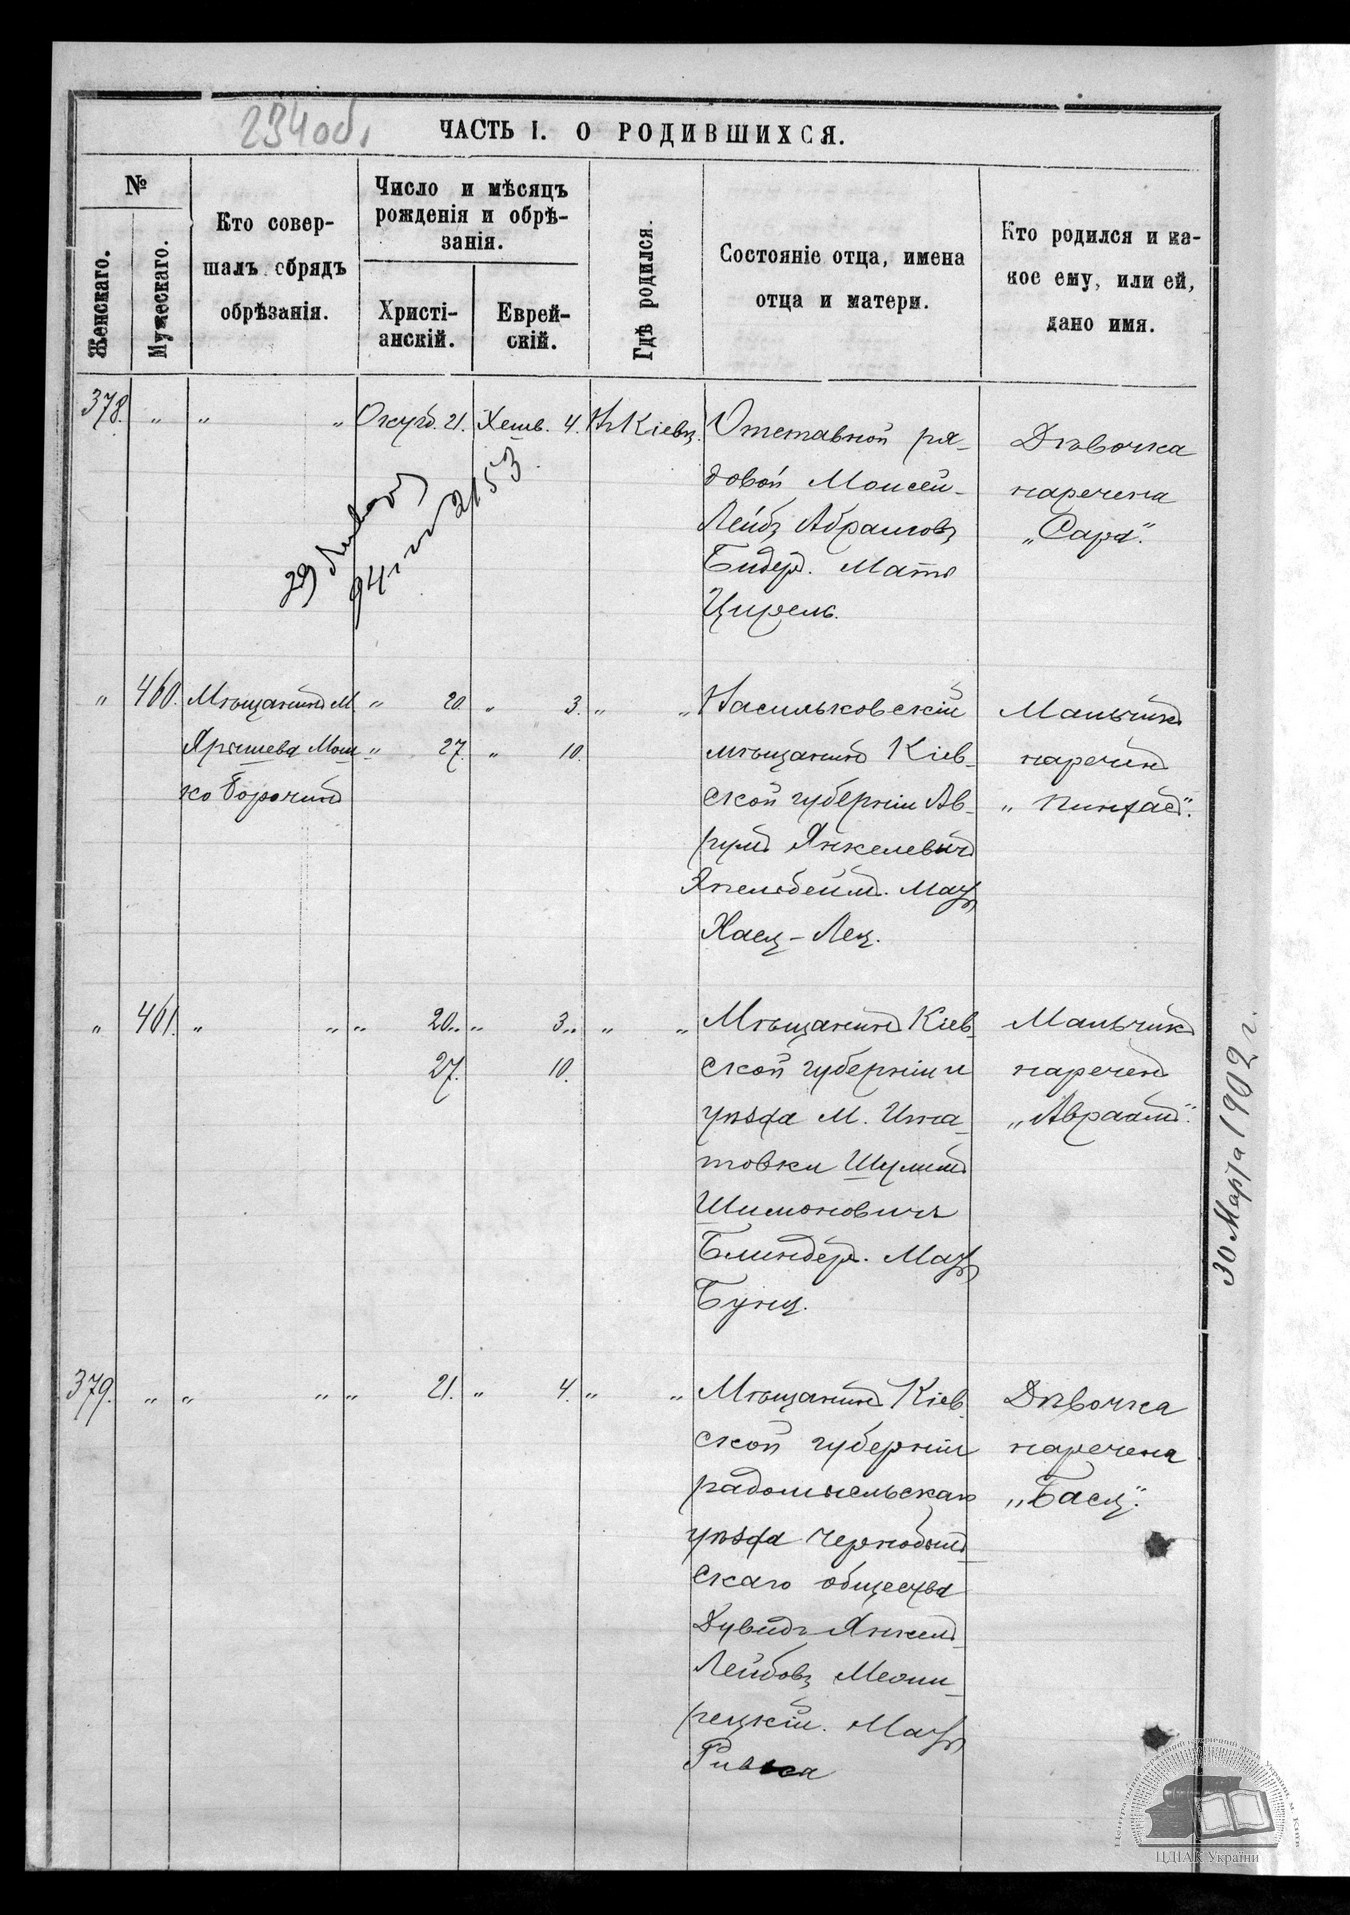 234 об.
ЧАСТЬ I. О РОДИВШИХСЯ.
№
Женскаго.
Мужескаго.
Кто совер-
шалъ обрядъ
обрѣзанія.
Число и мѣсяцъ
рожденія и обрѣ-
занія.
Христі-
анскій.
Еврей-
скій.
Гдѣ родился.
Состояніе отца, имена
отца и матери.
Кто родился и ка-
кое ему, или ей,
дано имя.
378. " " " Октяб. 21. Хешв. 4. Въ Кіевѣ.
Отставной ря-
довой Моисей-
Лейбъ Абрамовъ
Бидер. Мать
Цирель.
Дѣвочка
наречена
„Сара".
29
2153
" 460. Мѣщанинъ М. " 20. " 3. " "
Ярышева Мош- " 27. " 10.
ко Борочинъ
Васильковскій
мѣщанинъ Кіев-
ской губерніи Ав-
румъ Янкелевичъ
Апельбеймъ. Мать
Хася-Лея.
Мальчикъ
нареченъ
„Пинхасъ".
" 461. " " " 20. " 3. " "
27. 10.
Мѣщанинъ Кіев-
ской губерніи и
уѣзда М. Игна-
товки Шулимъ
Шимоновичъ
Блиндеръ. Мать
Буня.
Мальчикъ
нареченъ
„Авраамъ".
379. " " " " 21. " 4. " "
Мѣщанинъ Кіев-
ской губерніи
радомысльскаго
уѣзда Чернобыль-
скаго общества
Дувидъ-Янкель
Лейбовъ
Мать
Ривка
Дѣвочка
наречена
„Бася".
30 Марта 1902 г.
ЦДІАК України